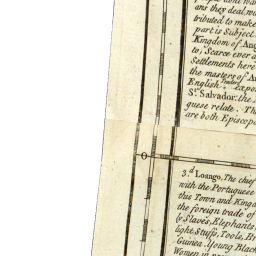 ans they deal, w
tributed to make
part is Subject
Kingdom of An
to; Scarce ever a
Settlements here
the masters of A
English
St. Salvador, the
guese relate. Th
are both Episcop
0
3.d Loango, The chief
with the Portuguese
this Town and Kingd
the foreign trade of
(y Slaves, Elephants
light Stuffs, Tools, Br
Guinea. Young Black